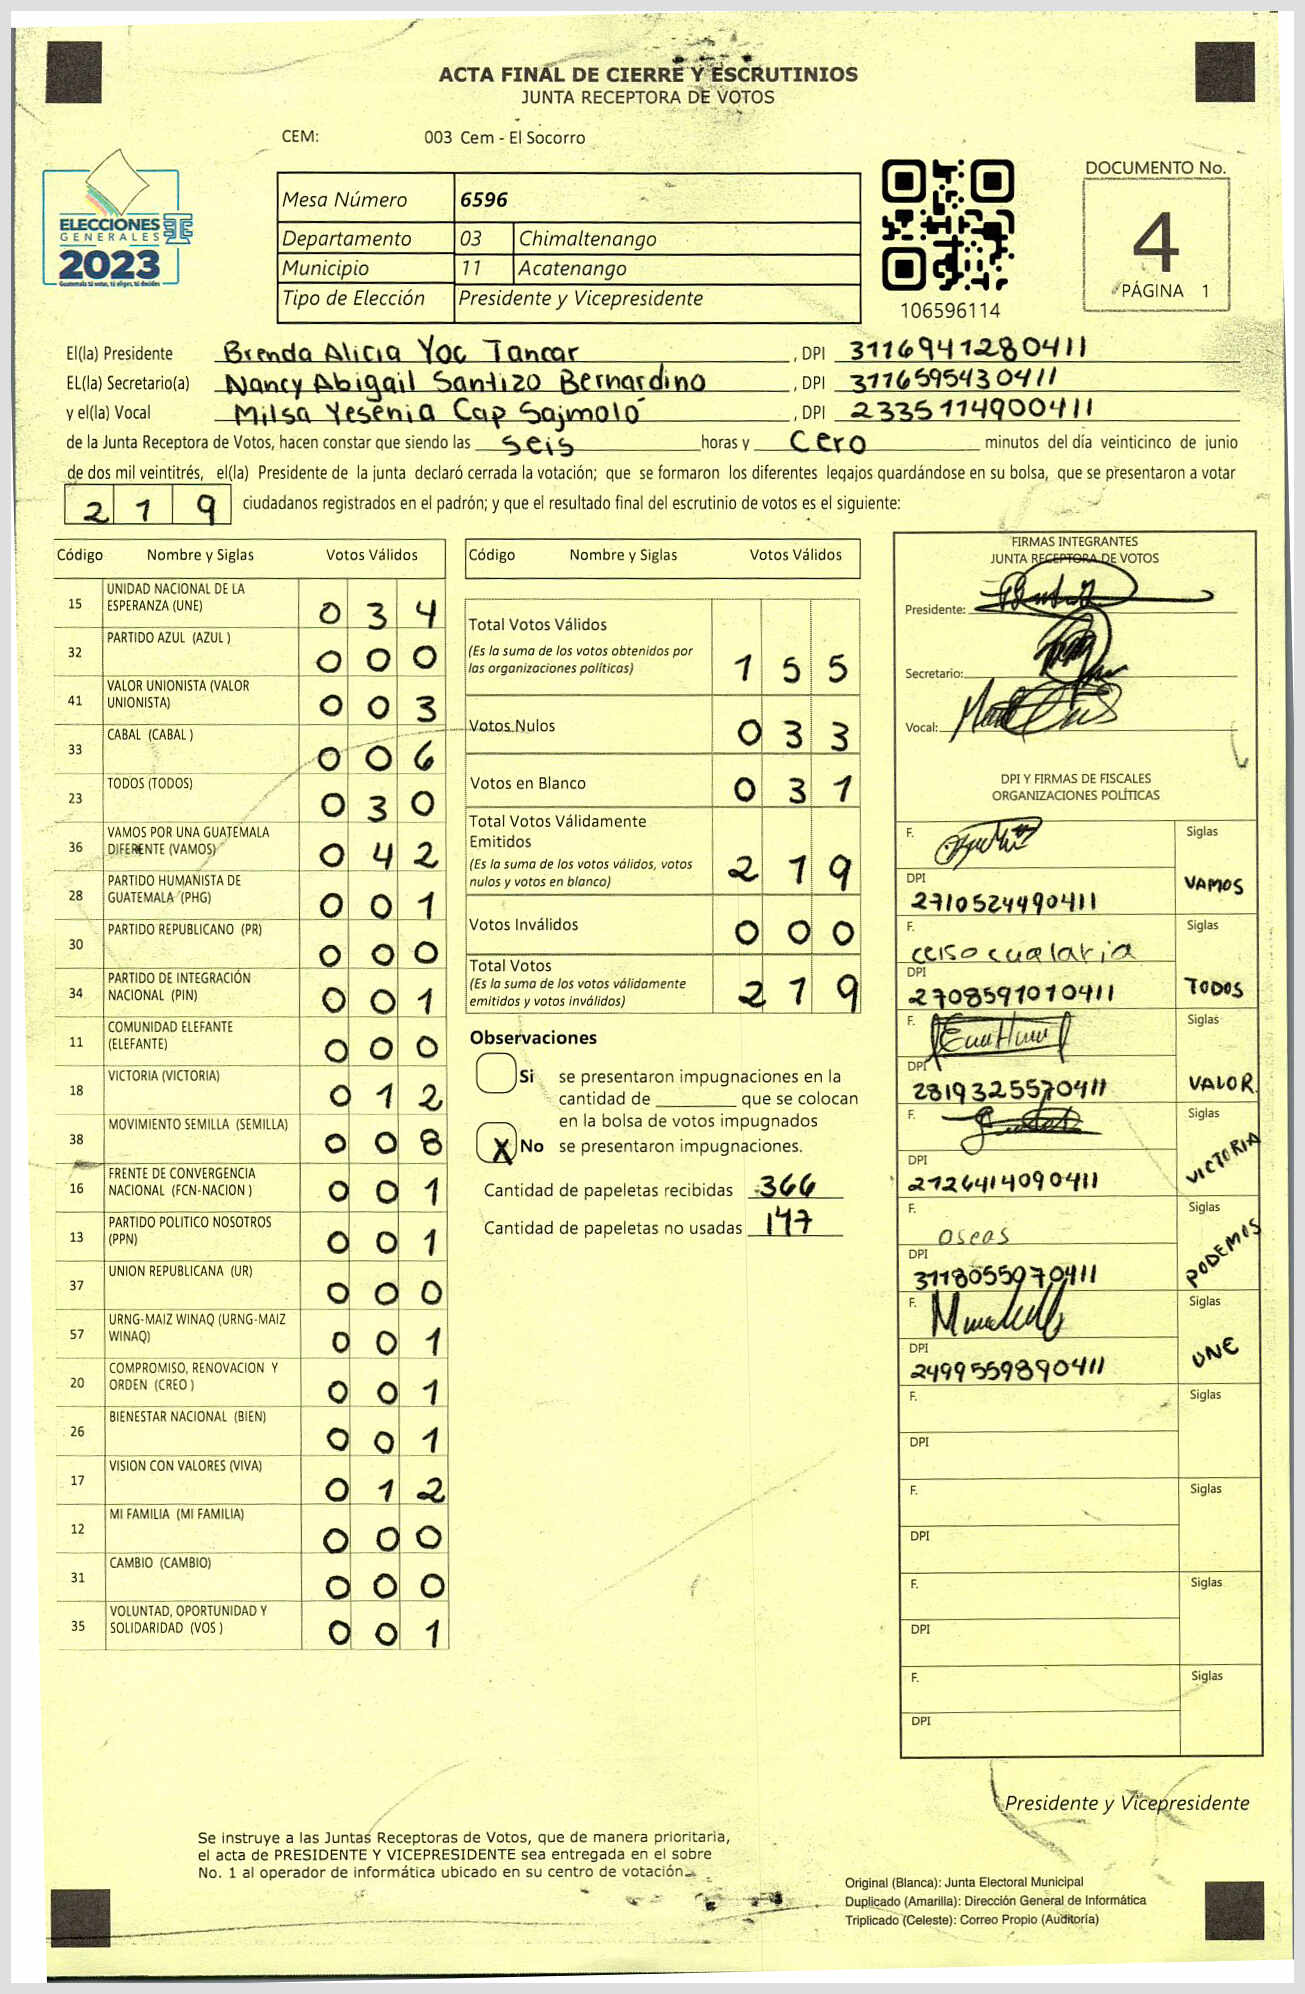 ACTA FINAL DE CIERRE Y ESCRUTINIOS
JUNTA RECEPTORA DE VOTOS
CEM: 003 Cem - El Socorro
ELECCIONES
GENERALES
2023
Guatemala tú votas, tú eliges, tú decides
Mesa Número 6596
Departamento 03 Chimaltenango
Municipio 11 Acatenango
Tipo de Elección Presidente y Vicepresidente
106596114
DOCUMENTO No.
4
PÁGINA 1
El(la) Presidente Brenda Alicia Yoc Tancar , DPI 3116941280411
EL(la) Secretario(a) Nancy Abigail Santizo Bernardino , DPI 3116595430411
y el(la) Vocal Milsa Yesenia Cap Sajmoló , DPI 2335114900411
de la Junta Receptora de Votos, hacen constar que siendo las seis horas y cero minutos del día veinticinco de junio
de dos mil veintitrés, el(la) Presidente de la junta declaró cerrada la votación; que se formaron los diferentes legajos quardándose en su bolsa, que se presentaron a votar
2 1 9 ciudadanos registrados en el padrón; y que el resultado final del escrutinio de votos es el siguiente:
Código Nombre y Siglas Votos Válidos
15 UNIDAD NACIONAL DE LA ESPERANZA (UNE) 0 3 4
32 PARTIDO AZUL (AZUL ) 0 0 0
41 VALOR UNIONISTA (VALOR UNIONISTA) 0 0 3
33 CABAL (CABAL ) 0 0 6
23 TODOS (TODOS) 0 3 0
36 VAMOS POR UNA GUATEMALA DIFERENTE (VAMOS) 0 4 2
28 PARTIDO HUMANISTA DE GUATEMALA (PHG) 0 0 1
30 PARTIDO REPUBLICANO (PR) 0 0 0
34 PARTIDO DE INTEGRACIÓN NACIONAL (PIN) 0 0 1
11 COMUNIDAD ELEFANTE (ELEFANTE) 0 0 0
18 VICTORIA (VICTORIA) 0 1 2
38 MOVIMIENTO SEMILLA (SEMILLA) 0 0 8
16 FRENTE DE CONVERGENCIA NACIONAL (FCN-NACION ) 0 0 1
13 PARTIDO POLITICO NOSOTROS (PPN) 0 0 1
37 UNION REPUBLICANA (UR) 0 0 0
57 URNG-MAIZ WINAQ (URNG-MAIZ WINAQ) 0 0 1
20 COMPROMISO, RENOVACION Y ORDEN (CREO ) 0 0 1
26 BIENESTAR NACIONAL (BIEN) 0 0 1
17 VISION CON VALORES (VIVA) 0 1 2
12 MI FAMILIA (MI FAMILIA) 0 0 0
31 CAMBIO (CAMBIO) 0 0 0
35 VOLUNTAD, OPORTUNIDAD Y SOLIDARIDAD (VOS ) 0 0 1
Código Nombre y Siglas Votos Válidos
Total Votos Válidos
(Es la suma de los votos obtenidos por
las organizaciones políticas) 1 5 5
Votos Nulos 0 3 3
Votos en Blanco 0 3 1
Total Votos Válidamente
Emitidos
(Es la suma de los votos válidos, votos
nulos y votos en blanco) 2 1 9
Votos Inválidos 0 0 0
Total Votos
(Es la suma de los votos válidamente
emitidos y votos inválidos) 2 1 9
Observaciones
Si se presentaron impugnaciones en la
cantidad de ________ que se colocan
en la bolsa de votos impugnados
X No se presentaron impugnaciones.
Cantidad de papeletas recibidas 366
Cantidad de papeletas no usadas 147
FIRMAS INTEGRANTES
JUNTA RECEPTORA DE VOTOS
Presidente:
Secretario:
Vocal:
DPI Y FIRMAS DE FISCALES
ORGANIZACIONES POLÍTICAS
F. Siglas
DPI VAMOS
2710524490411
F. Siglas
DPI TODOS
2708591010411
F. Siglas
DPI VALOR
2819325570411
F. Siglas
DPI VICTORIA
2126414090411
F. oseas Siglas
DPI PODEMOS
3118055070411
F. Siglas
DPI UNE
2499559890411
F. Siglas
DPI
F. Siglas
DPI
F. Siglas
DPI
F. Siglas
DPI
Presidente y Vicepresidente
Se instruye a las Juntas Receptoras de Votos, que de manera prioritaria,
el acta de PRESIDENTE Y VICEPRESIDENTE sea entregada en el sobre
No. 1 al operador de informática ubicado en su centro de votación.
Original (Blanca): Junta Electoral Municipal
Duplicado (Amarilla): Dirección General de Informática
Triplicado (Celeste): Correo Propio (Auditoría)